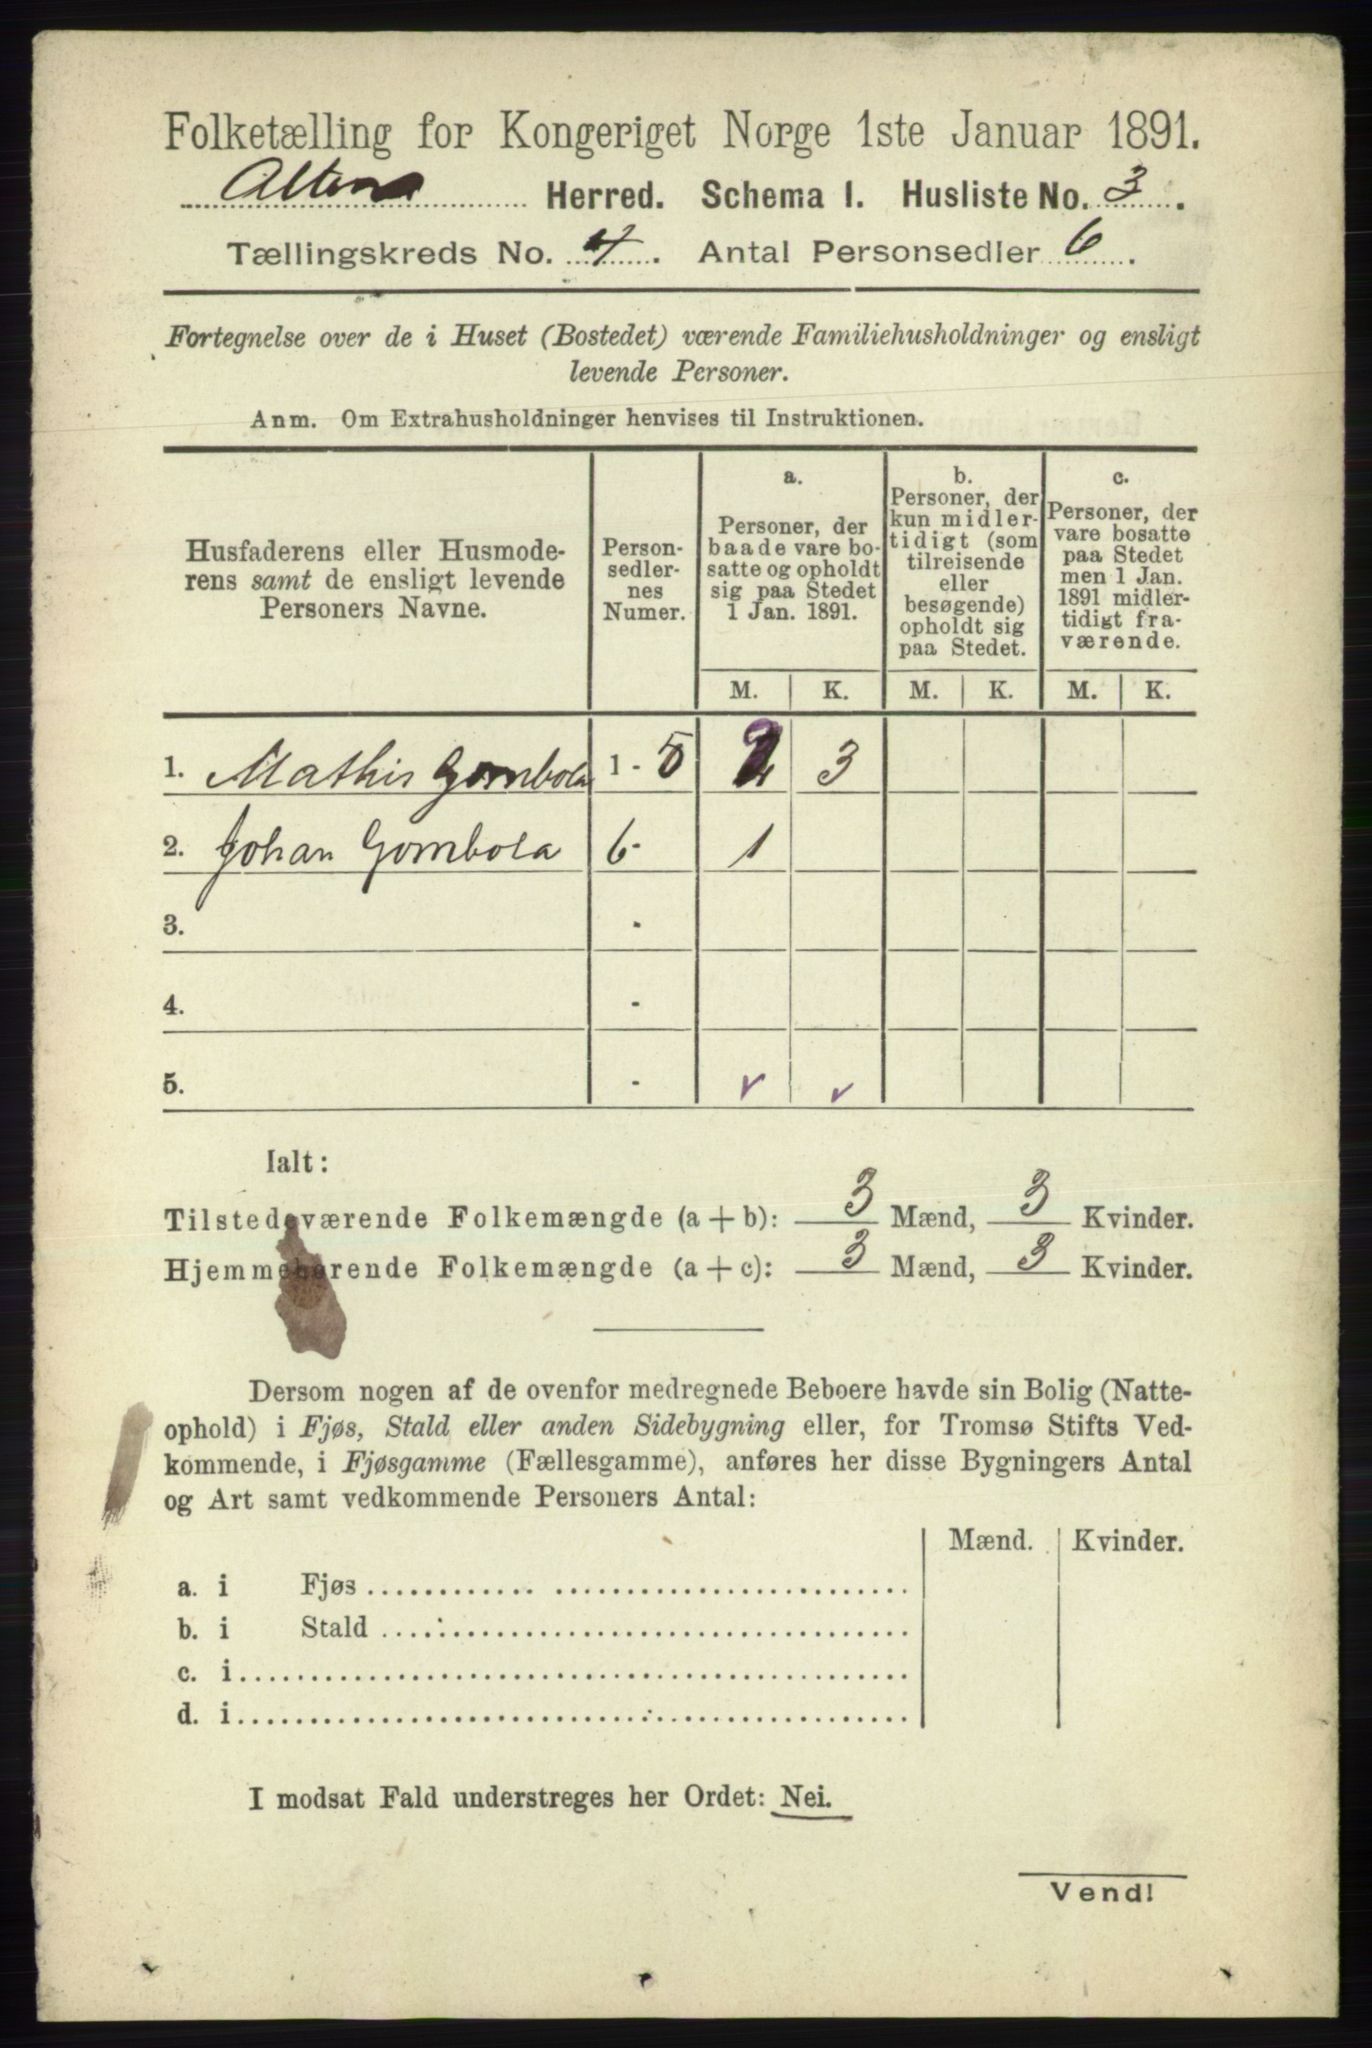 Folketælling for Kongeriget Norge 1ste Januar 1891.
Alten Herred. Schema I. Husliste No. 3.
Tællingskreds No. 4. Antal Personsedler 6.
Fortegnelse over de i Huset (Bostedet) værende Familiehusholdninger og ensligt
levende Personer.
Anm. Om Extrahusholdninger henvises til Instruktionen.
Husfaderens eller Husmode-
rens samt de ensligt levende
Personers Navne.
Person-
sedler-
nes
Numer.
a.
Personer, der
baade vare bo-
satte og opholdt
sig paa Stedet
1 Jan. 1891.
b.
Personer, der
kun midler-
tidigt (som
tilreisende
eller
besøgende)
opholdt sig
paa Stedet.
c.
Personer, der
vare bosatte
paa Stedet
men 1 Jan.
1891 midler-
tidigt fra-
værende.
M. K. M. K. M. K.
1. Mathis Gombola 1 - 5 2 3
2. Johan Gombola 6 - 1
3. -
4. -
5. -
Ialt:
Tilstedeværende Folkemængde (a + b): 3 Mænd, 3 Kvinder.
Hjemmehørende Folkemængde (a + c): 3 Mænd, 3 Kvinder.
Dersom nogen af de ovenfor medregnede Beboere havde sin Bolig (Natte-
ophold) i Fjøs, Stald eller anden Sidebygning eller, for Tromsø Stifts Ved-
kommende, i Fjøsgamme (Fællesgamme), anføres her disse Bygningers Antal
og Art samt vedkommende Personers Antal:
Mænd. Kvinder.
a. i Fjøs
b. i Stald
c. i
d. i
I modsat Fald understreges her Ordet: Nei.
Vend!